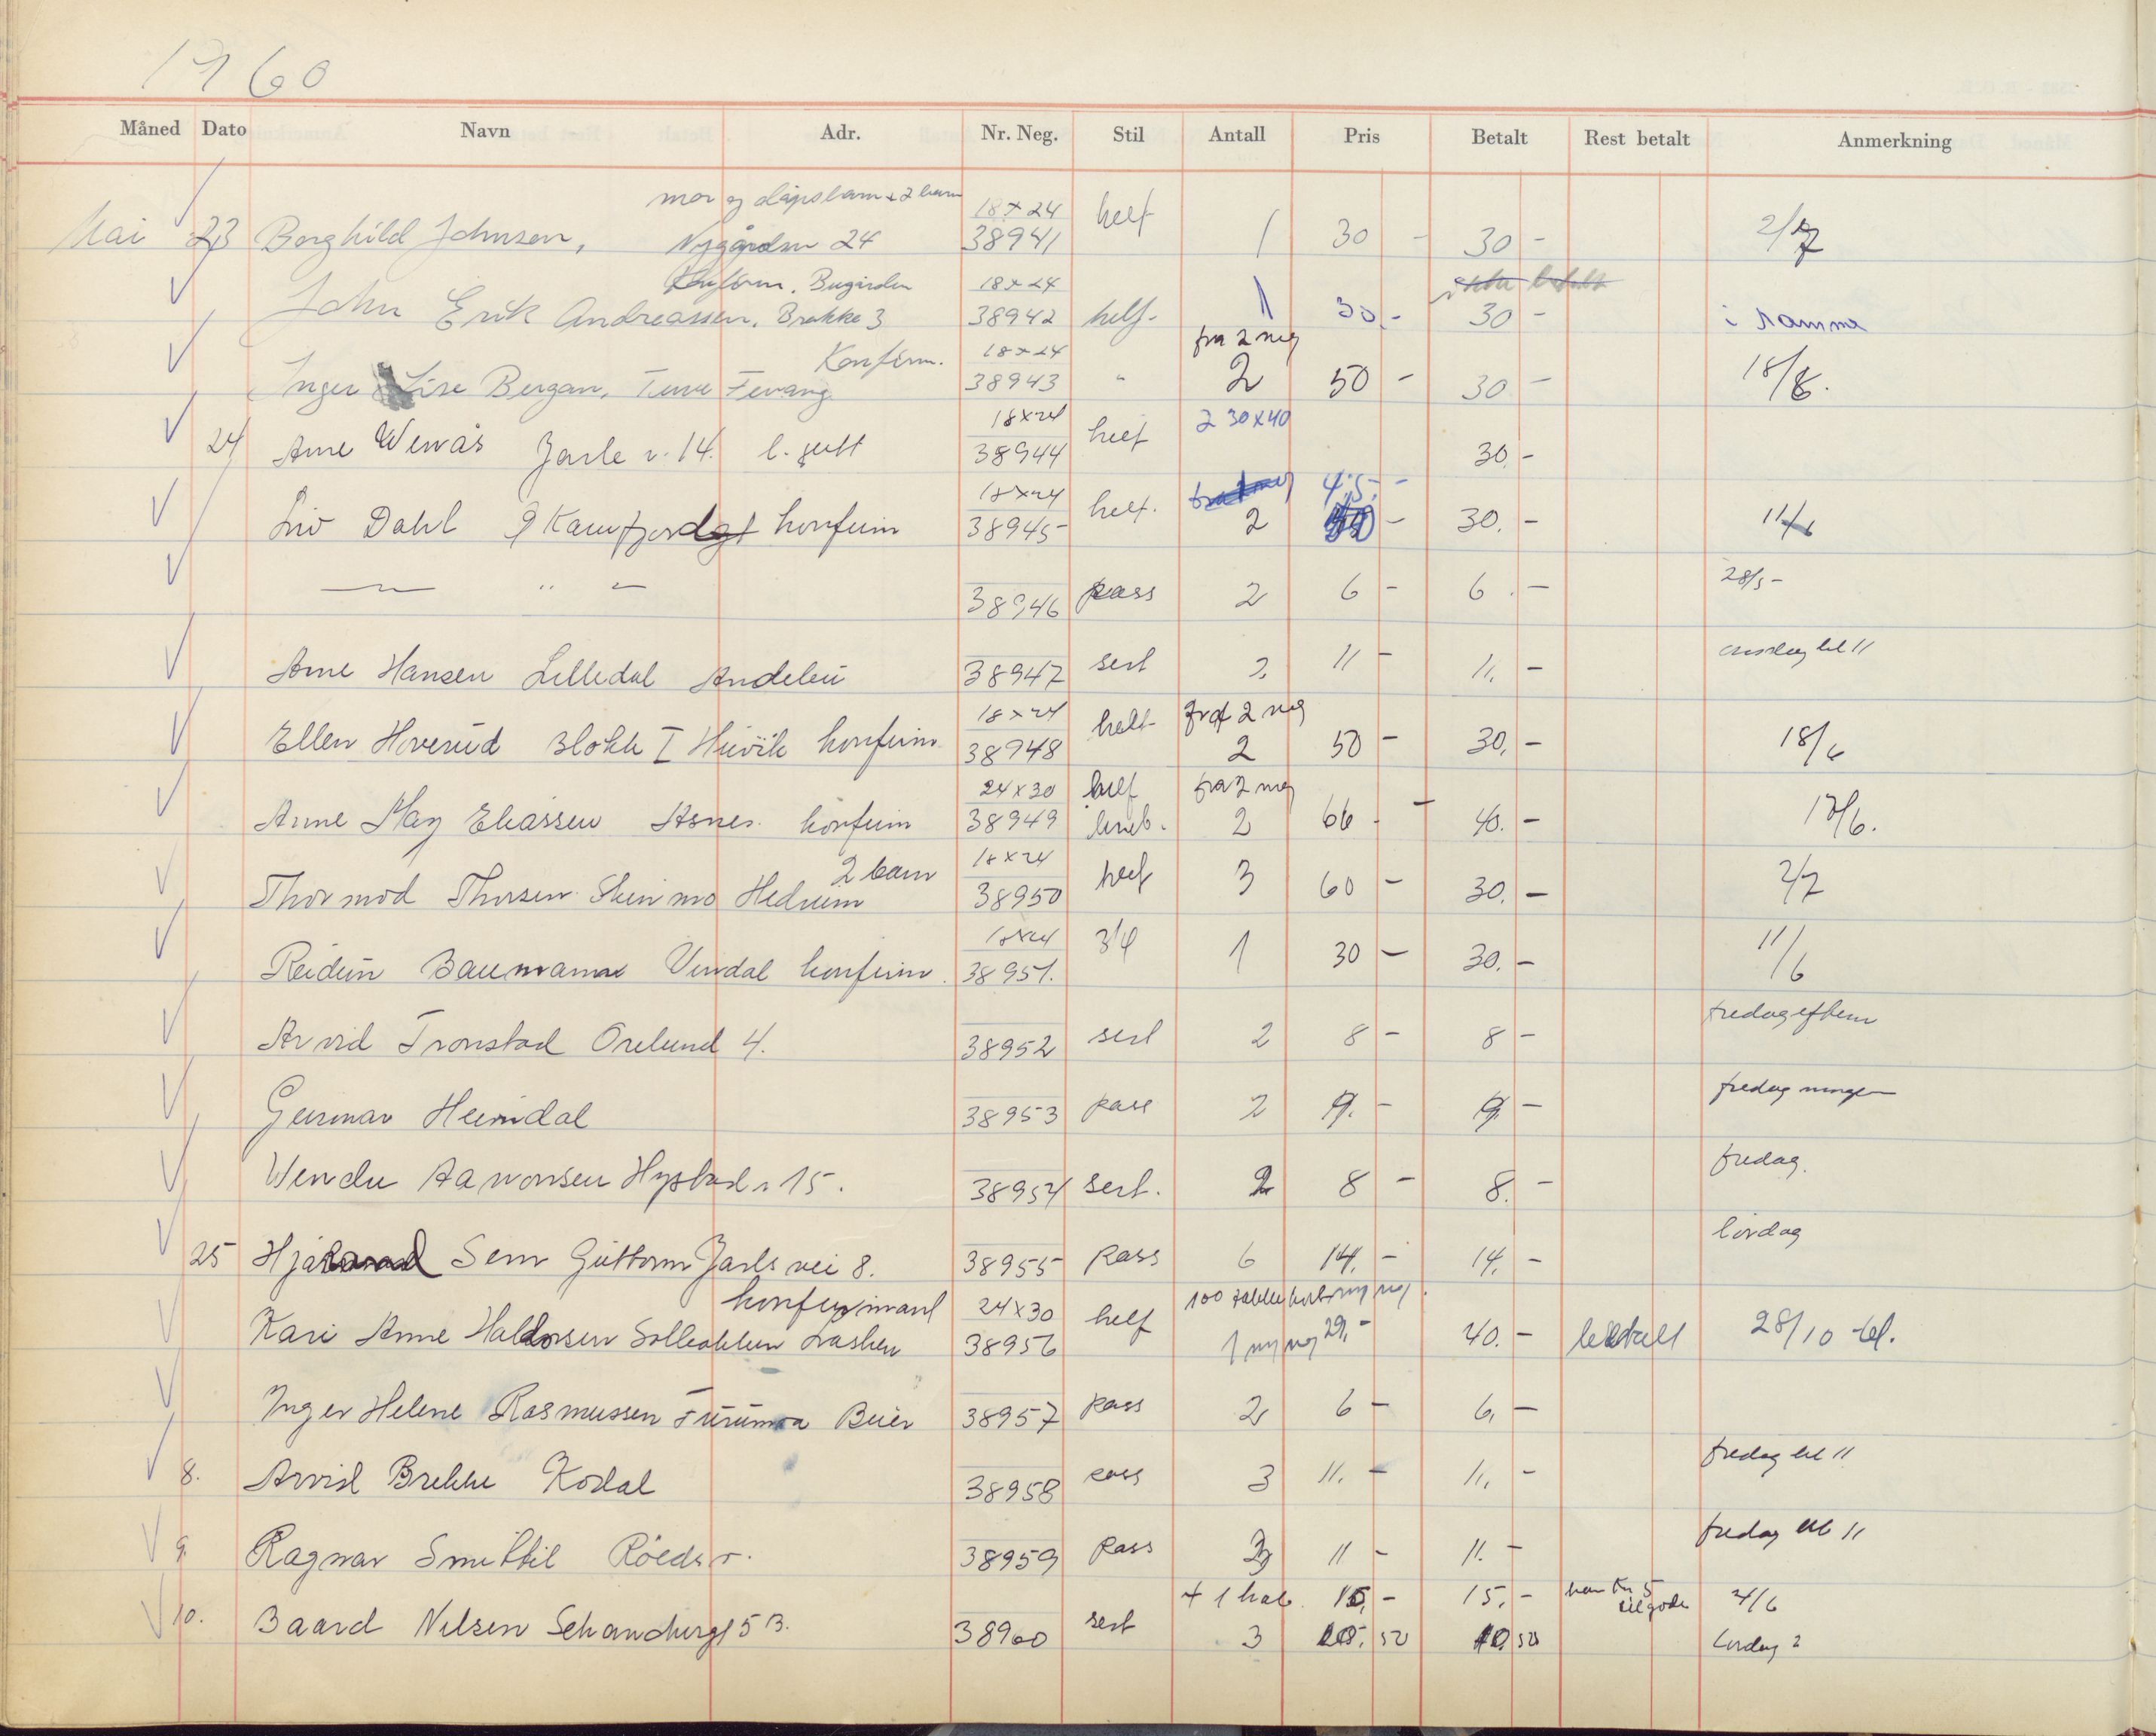 1960
Måned Dato Navn Adr. Nr. Neg. Stil Antall Pris Betalt Rest betalt Anmerkning
mor og dåpsbarn + 2 barn 18x24
Mai 23 Borghild Johnsen, Nygården 24 38941 helf 1 30 - 30 - 2/7
Konfirm. Bugården 18x24
John Erik Andreassen, Brekke 3 38942 helf- 1 30,- 30 - i ramme
Konfirm. 18x24 fra 2 neg
Inger Lise Bergan, Fevang 38943 " 2 50 - 30 - 18/6.
18x24 2 30x40
24 Arne Jarle v. 14. l. gutt 38944 helf 30.-
18x24 45,-
Liv Dahl 9 konfirm 38945 helf. 2 30.- 11/6
— " — 38946 pass 2 6 - 6 . - 28/5 -
Arne Hansen Lilledal Andebu 38947 sert 2, 11 - 11, - onsdag kl 11
18x24 fra 2 neg
Ellen Hoverud Blokk I konfirm 38948 helt 2 50 - 30, - 18/6
24x30 helf fra 2 neg
Anne May Eliassen Asnes. konfirm 38949 2 66 - 40. -
2 barn 18x24
Thormod Thorsen Hedrum 38950 helf 3 60 - 30. - 2/7
18x24 3/4
Reidun Baumann Vindal konfirm. 38951. 1 30 - 30. - 11/6
Arvid Tronstad Orelund 4. 38952 sert 2 8 - 8 - fredag efterm
Gunnar Heimdal 38953 pass 2 9. - 9. - fredag morgen
Aamonsen Hystad v 15. 38954 sert. 2 8 - 8. - fredag.
25 Sem Guttorm Jarls vei 8. 38955 pass 6 14, - 14, - lördag
konfirmant 24x30
Kari Anne Haldorsen 38956 helf 1 ny neg 29,- 40. - 28/10 tel.
Inger Helene Rasmussen Furumoa 38957 pass 2 6 - 6, -
8. Arvid Brekke Kodal 38958 pass 3 11. - 11, - fredag kl 11
9. Ragnar 38959 pass 3 11 - 11. - fredag kl 11
+ 1 kab. 15,- 15,- har kr 5 tilgode 4/6
10. Baard Nilsen 5 B. 38960 sert 3 10.50 10.50 Lördag 2